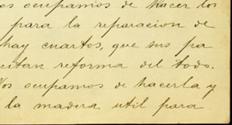 os ocupamos de hacer los
para la reparacion de
hay cuartos, que sus pa
citan reforma del todo.
Nos ocupamos de hacerla y
la madera util para